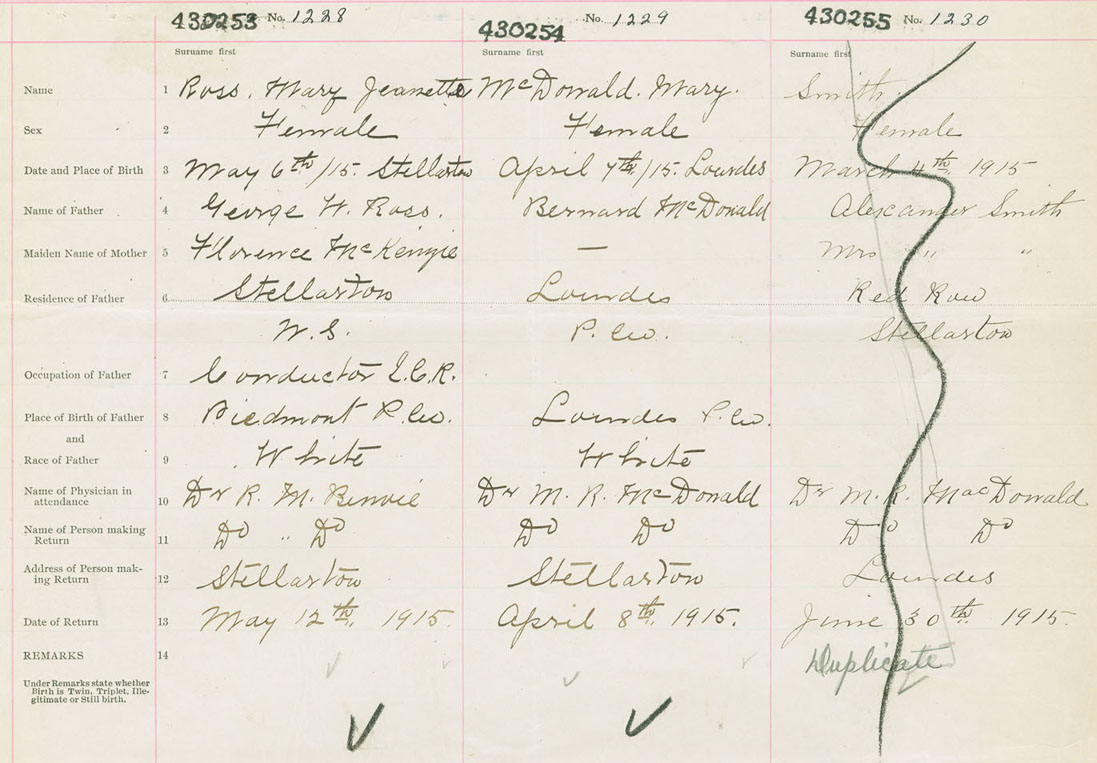 430253 No. 1228
430254 No. 1229
430255 No. 1230
Surname first Surname first Surname first
Name 1 Ross. Mary Jeanette McDonald. Mary. Smith.
Sex 2 Female Female Female
Date and Place of Birth 3 May 6th/15. Stellarton April 7th/15. Lourdes March 4th 1915
Name of Father 4 George H. Ross. Bernard McDonald Alexander Smith
Maiden Name of Mother 5 Florence McKenzie — Mrs " "
Residence of Father 6 Stellarton Lourdes Red Row
N.S. P. Co. Stellarton
Occupation of Father 7 Conductor I.C.R.
Place of Birth of Father 8 Piedmont P. Co. Lourdes P. Co.
and
Race of Father 9 White White
Name of Physician in
attendance 10 Dr R. M. Benvie Dr M. R. McDonald Dr M. R. MacDonald
Name of Person making
Return 11 Do " Do Do Do Do Do
Address of Person mak-
ing Return 12 Stellarton Stellarton Lourdes
Date of Return 13 May 12th. 1915. April 8th. 1915. June 30th. 1915.
REMARKS 14 Duplicate
Under Remarks state whether
Birth is Twin, Triplet, Ille-
gitimate or Still birth.